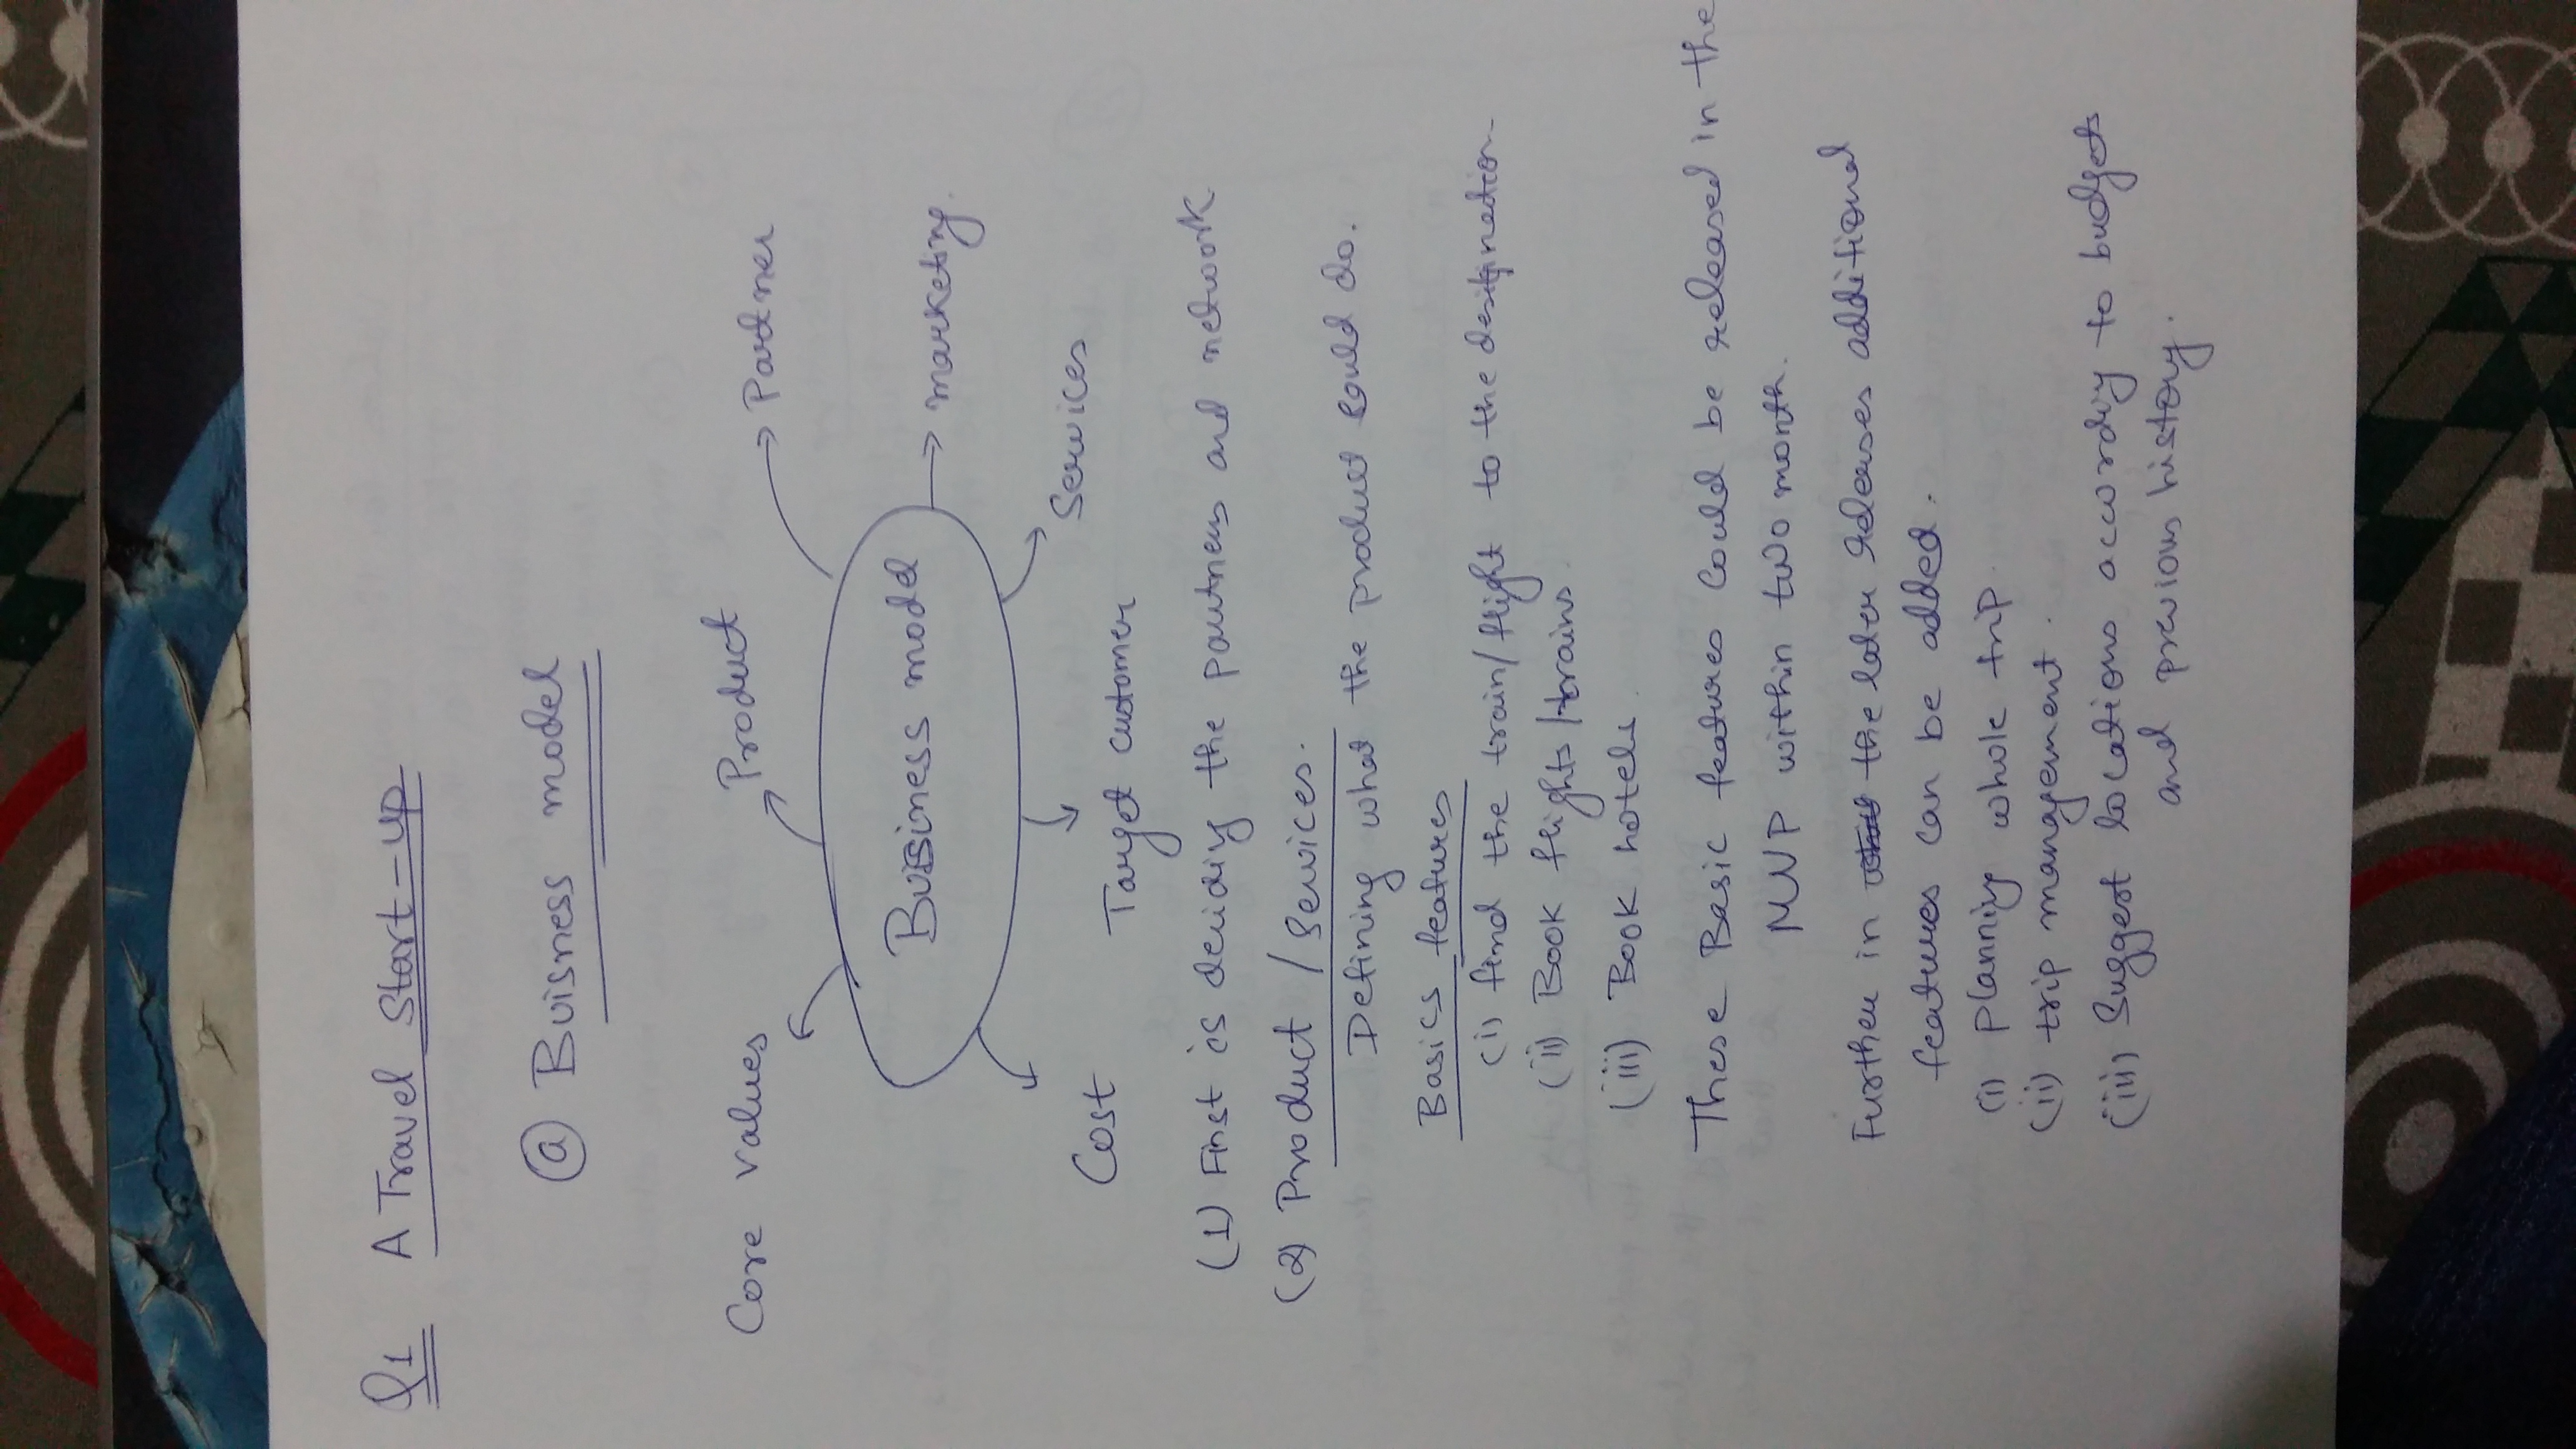 Q1 A Travel Start-up
(a) Buisness model
Core values
Product
Partner
Business model
marketing.
Cost
Target customer
Services
(1) First is deciding the partners and network
(2) Product / Services.
Defining what the product could do.
Basics features
(i) find the train/flight to the destination
(ii) Book flights/trains.
(iii) Book hotels.
These Basic features could be released in the
MVP within two month.
Further in the later releases additional
features can be added.
(i) planning whole trip.
(ii) trip management.
(iii) Suggest locations according to budgets
and previous history.